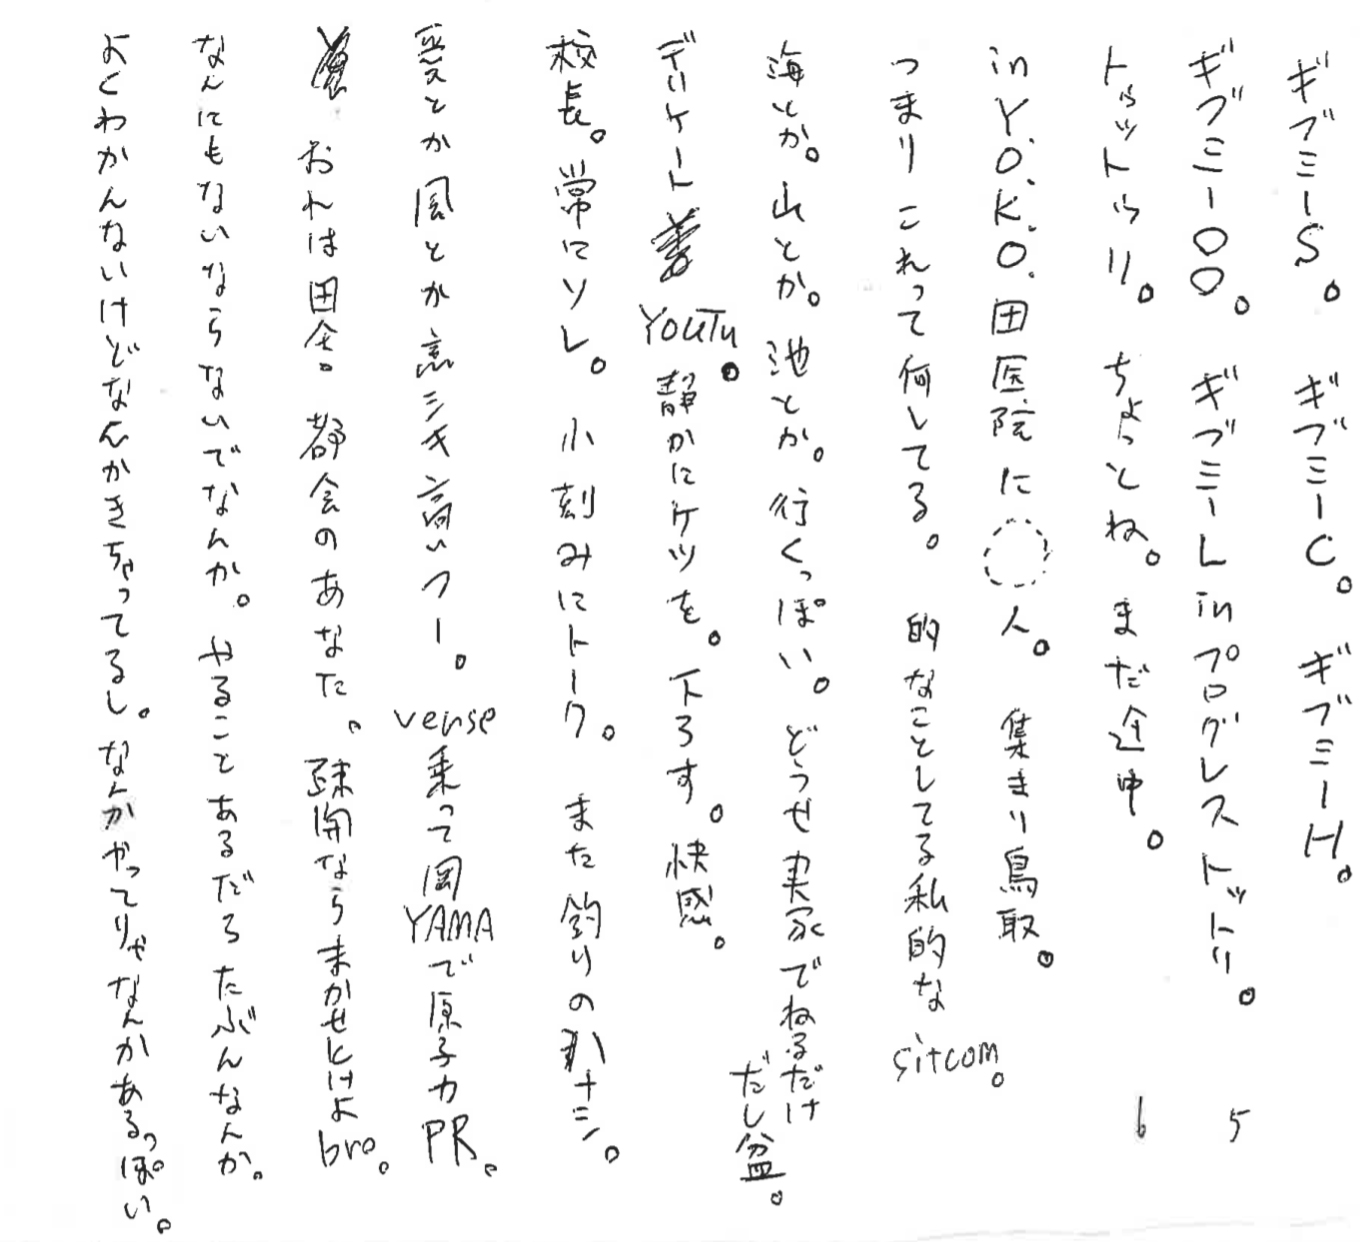 ギブミーS。ギブミーC。ギブミーH。
ギブミーOO。ギブミーL inプログレストットリ。
トゥットゥリ。ちょっとね。まだ途中。
in Y.O.K.O.田医院に 人。集まり鳥取。
つまりこれって何してる。的なことしてる私的な sitcom。
海とか。山とか。池とか。行くっぽい。どうせ実家でねるだけ
だし盆。
デリケート YOUTu。静かにケツを。下ろす。快感。
校長。常にソレ。小刻みにトーク。また釣りのハナシ。
愛とか風とか意シキ高いフー。verse乗って岡YAMAで原子力PR。
おれは田舎。都会のあなた。疎開ならまかせとけよbro。
なんにもないならないでなんか。やることあるだろたぶんなんか。
よくわかんないけどなんかきちゃってるし。なんかやってりゃなんかあるっぽい。
5
6